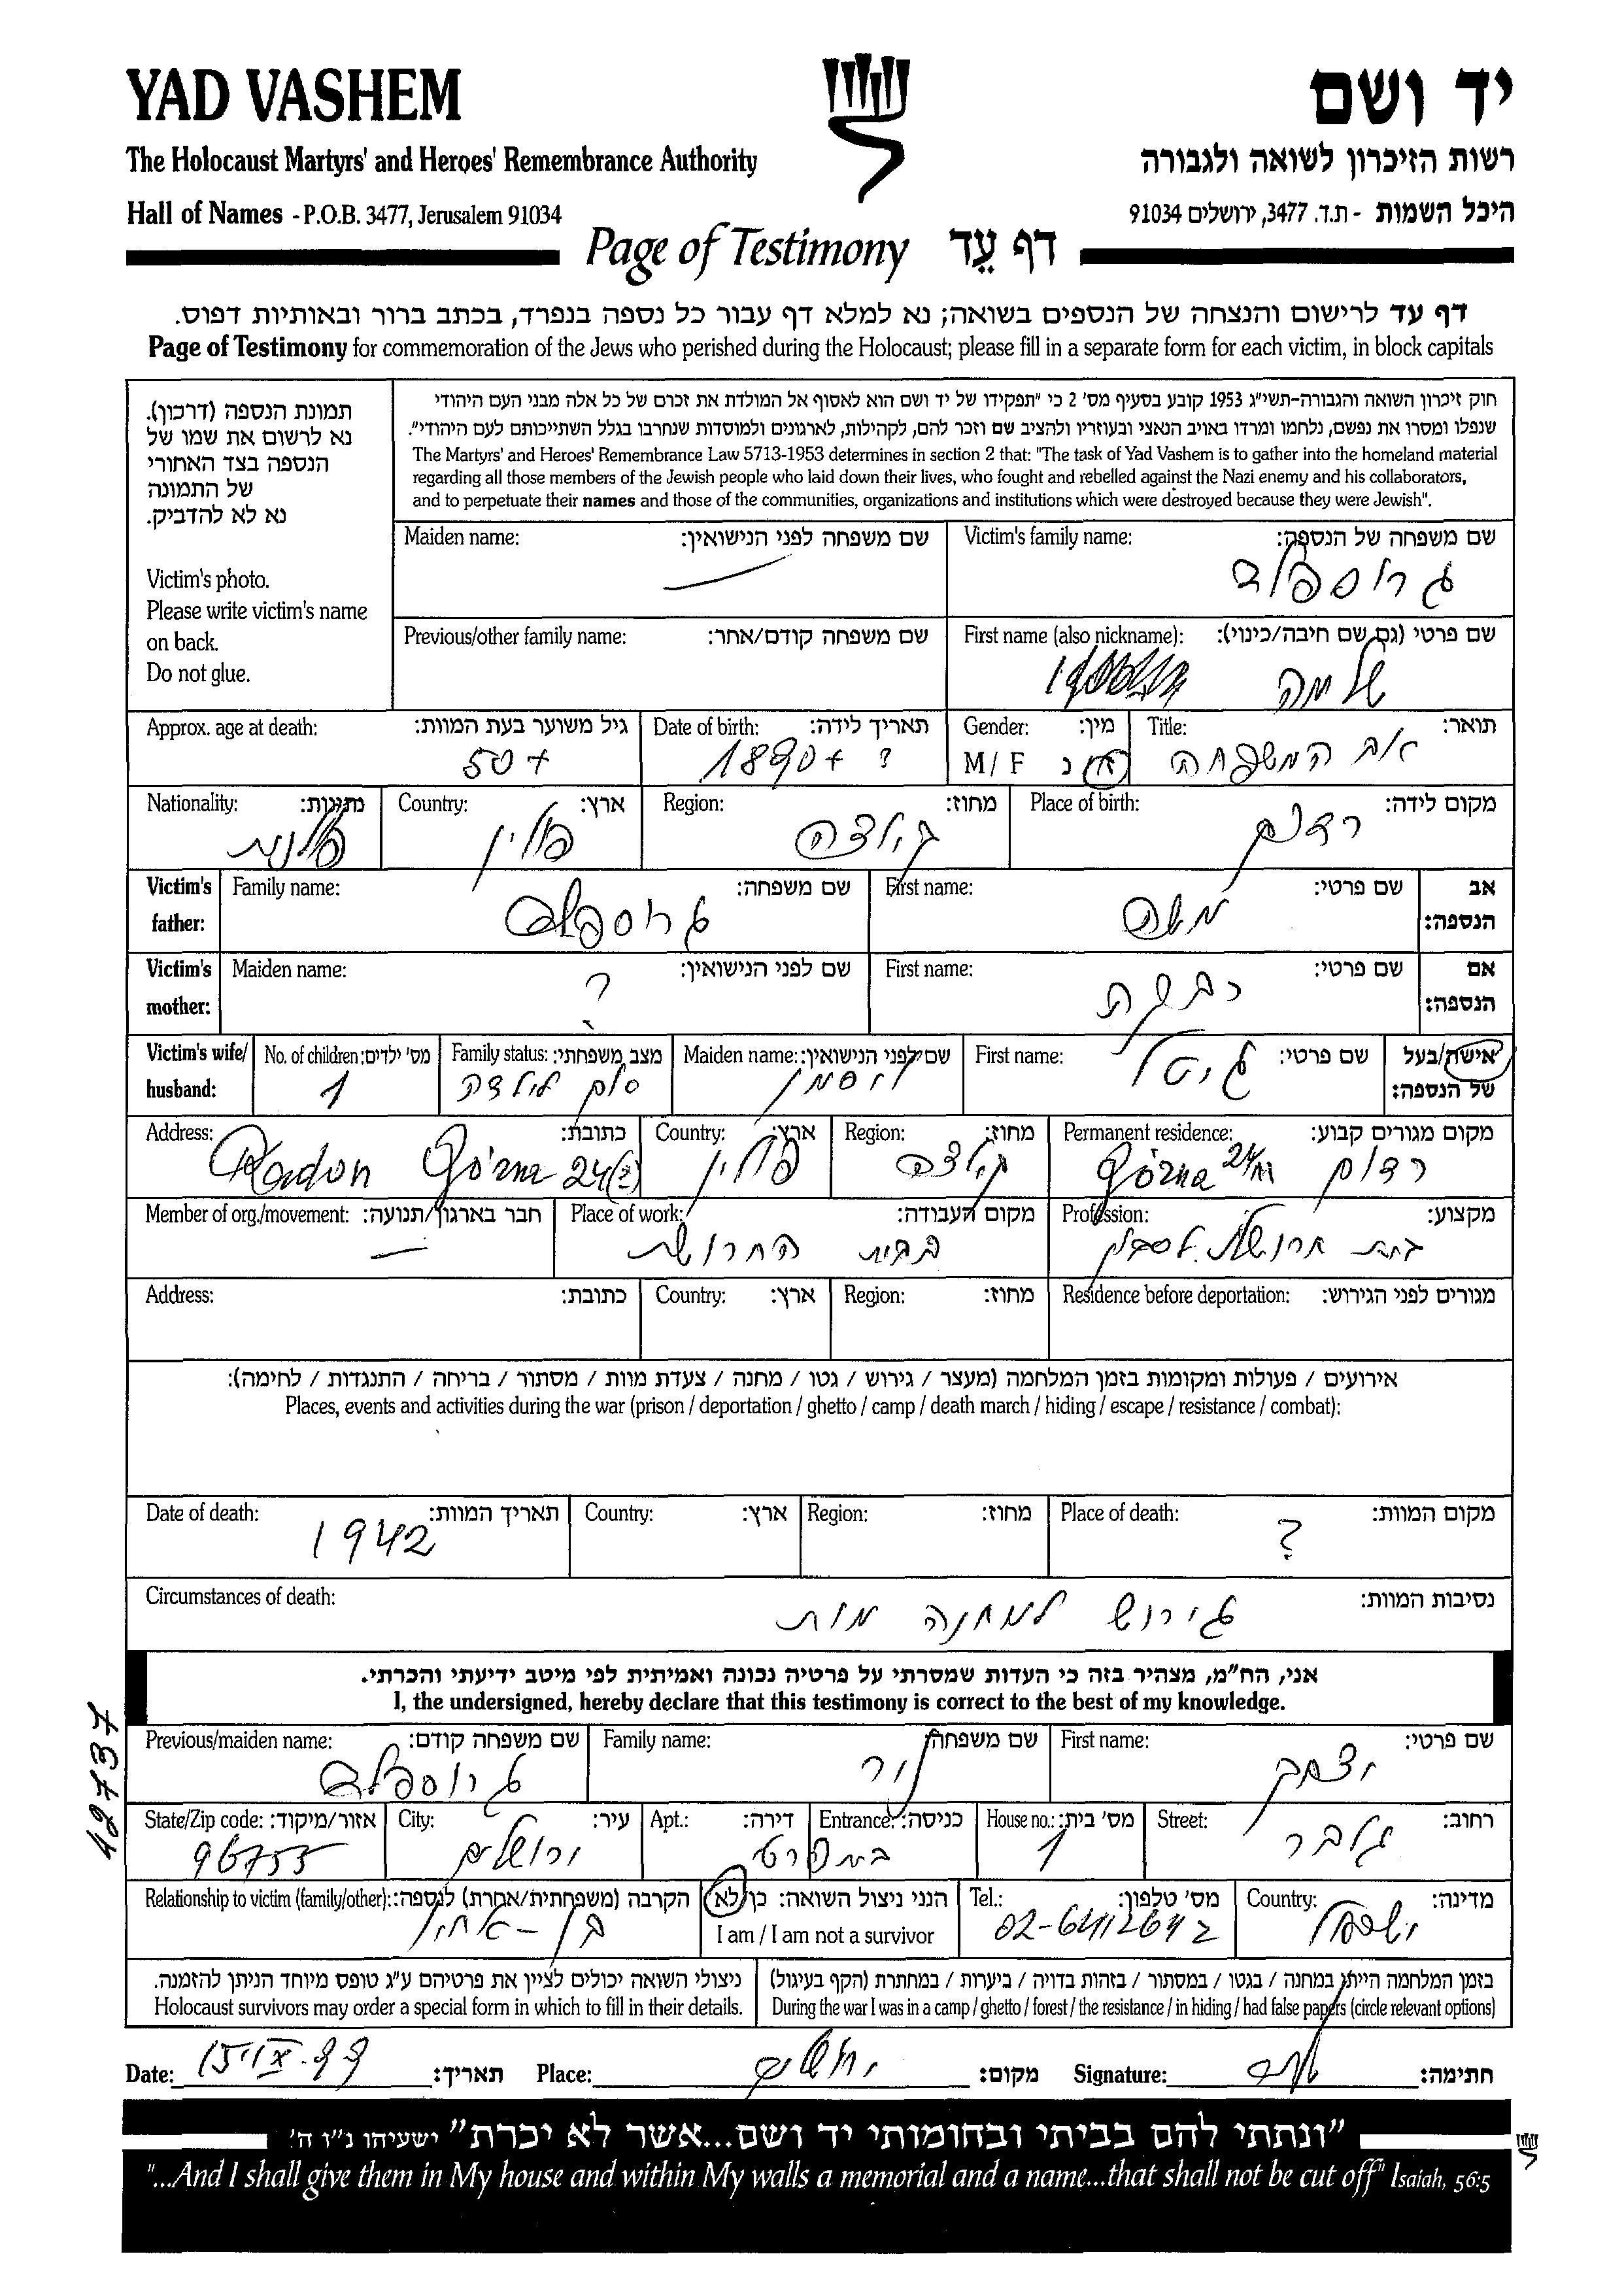 YAD VASHEM
יד ושם
The Holocaust Martyrs' and Heroes' Remembrance Authority
רשות הזיכרון לשואה ולגבורה
Hall of Names - P.O.B. 3477, Jerusalem 91034
היכל השמות - ת.ד. 3477, ירושלים 91034
Page of Testimony דף עֵד
דף עד לרישום והנצחה של הנספים בשואה; נא למלא דף עבור כל נספה בנפרד, בכתב ברור ובאותיות דפוס.
Page of Testimony for commemoration of the Jews who perished during the Holocaust; please fill in a separate form for each victim, in block capitals
תמונת הנספה (דרכון).
נא לרשום את שמו של
הנספה בצד האחורי
של התמונה
נא לא להדביק.
Victim's photo.
Please write victim's name
on back.
Do not glue.
חוק זיכרון השואה והגבורה-תשי"ג 1953 קובע בסעיף מס' 2 כי "תפקידו של יד ושם הוא לאסוף אל המולדת את זכרם של כל אלה מבני העם היהודי
שנפלו ומסרו את נפשם, נלחמו ומרדו באויב הנאצי ובעוזריו ולהציב שם וזכר להם, לקהילות, לארגונים ולמוסדות שנחרבו בגלל השתייכותם לעם היהודי".
The Martyrs' and Heroes' Remembrance Law 5713-1953 determines in section 2 that: "The task of Yad Vashem is to gather into the homeland material
regarding all those members of the Jewish people who laid down their lives, who fought and rebelled against the Nazi enemy and his collaborators,
and to perpetuate their names and those of the communities, organizations and institutions which were destroyed because they were Jewish".
Victim's family name: שם משפחה של הנספה:
גרוספלד
Maiden name: שם משפחה לפני הנישואין:
—
First name (also nickname): שם פרטי (גם שם חיבה/כינוי):
שלמה
Previous/other family name: שם משפחה קודם/אחר:
Title: תואר:
אב המשפחה
Gender: מין:
M / F ז נ
Date of birth: תאריך לידה:
1890+ ?
Approx. age at death: גיל משוער בעת המוות:
50+
Place of birth: מקום לידה:
רדום
Region: מחוז:
קילצה
Country: ארץ:
פולין
Nationality: נתינות:
פולנית
Victim's father: אב הנספה:
First name: שם פרטי:
משה
Family name: שם משפחה:
גרוספלד
Victim's mother: אם הנספה:
First name: שם פרטי:
רבקה
Maiden name: שם לפני הנישואין:
?
Victim's wife/ husband: אישה/בעל של הנספה:
First name: שם פרטי:
גיטל
Maiden name: שם לפני הנישואין:
Family status: מצב משפחתי:
No. of children: מס' ילדים:
1
Permanent residence: מקום מגורים קבוע:
רדום Górna 24/
Region: מחוז:
קילצה
Country: ארץ:
פולין
Address: כתובת:
Radom Górna 24(?)
Profession: מקצוע:
בית חרושת
Place of work: מקום העבודה:
בבית החרושת
Member of org./movement: חבר בארגון/תנועה:
—
Residence before deportation: מגורים לפני הגירוש:
Region: מחוז:
Country: ארץ:
Address: כתובת:
אירועים / פעולות ומקומות בזמן המלחמה (מעצר / גירוש / גטו / מחנה / צעדת מוות / מסתור / בריחה / התנגדות / לחימה):
Places, events and activities during the war (prison / deportation / ghetto / camp / death march / hiding / escape / resistance / combat):
Place of death: מקום המוות:
?
Region: מחוז:
Country: ארץ:
Date of death: תאריך המוות:
1942
Circumstances of death: נסיבות המוות:
גירוש למחנה מות
אני, הח"מ, מצהיר בזה כי העדות שמסרתי על פרטיה נכונה ואמיתית לפי מיטב ידיעתי והכרתי.
I, the undersigned, hereby declare that this testimony is correct to the best of my knowledge.
42737
First name: שם פרטי:
יצחק
Family name: שם משפחה:
ניר
Previous/maiden name: שם משפחה קודם:
גרוספלד
Street: רחוב:
גלבר
House no.: מס' בית:
1
Entrance: כניסה:
Apt.: דירה:
City: עיר:
ירושלים
State/Zip code: אזור/מיקוד:
96755
Country: מדינה:
ישראל
Tel.: מס' טלפון:
02-6412642
הנני ניצול השואה: כן/לא
I am / I am not a survivor
Relationship to victim (family/other): הקרבה (משפחתית/אחרת) לנספה:
בן-אחיו
בזמן המלחמה הייתי במחנה / בגטו / במסתור / בזהות בדויה / ביערות / במחתרת (הקף בעיגול)
During the war I was in a camp / ghetto / forest / the resistance / in hiding / had false papers (circle relevant options)
ניצולי השואה יכולים לציין את פרטיהם ע"ג טופס מיוחד הניתן להזמנה.
Holocaust survivors may order a special form in which to fill in their details.
Date: תאריך: Place: ירושלים מקום: Signature: חתימה:
"ונתתי להם בביתי ובחומותי יד ושם...אשר לא יכרת" ישעיהו נ"ו ה'
"...And I shall give them in My house and within My walls a memorial and a name...that shall not be cut off" Isaiah, 56:5